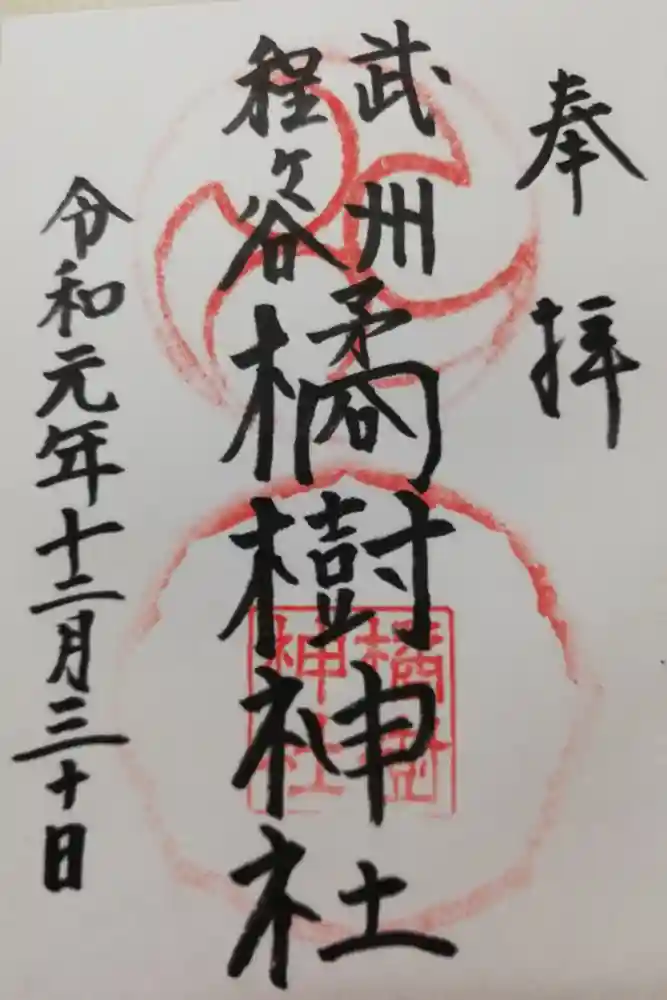 奉拝
武州
程ヶ谷
橘樹神社
橘樹
神社
令和元年十二月三十日